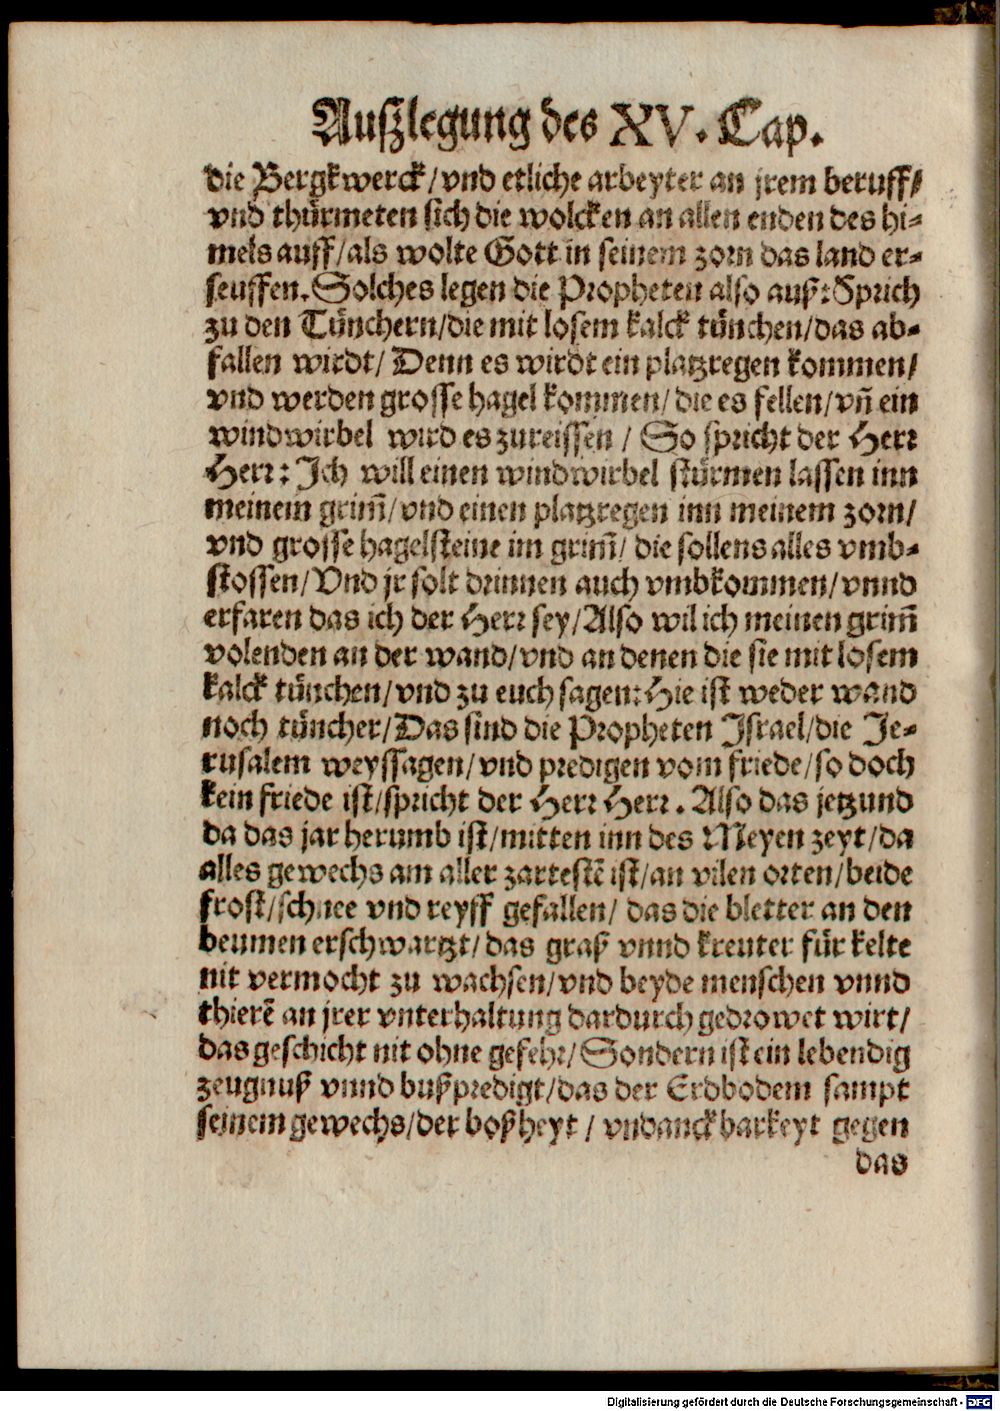 Auſzlegung des XV. Cap.
die Bergkwerck/vnd etliche arbeyter an jrem beruff/
vnd thürmeten ſich die wolcken an allen enden des hi-
mels auff/als wolte Gott in ſeinem zorn das land er-
ſeuffen. Solches legen die Propheten alſo auß: Sprich
zu den Tünchern/die mit loſem kalck tünchen/das ab-
fallen wirdt/ Denn es wirdt ein platzregen kommen/
vnd werden groſſe hagel kommen/ die es fellen/vñ ein
windwirbel wird es zureiſſen / So ſpricht der Herr
Herr: Ich will einen windwirbel ſtürmen laſſen inn
meinem grim̃/vnd einen platzregen inn meinem zorn/
vnd groſſe hagelſteine im grim̃/ die ſollens alles vmb-
ſtoſſen/Vnd jr ſolt drinnen auch vmbkommen/vnnd
erfaren das ich der Herr ſey/Alſo wil ich meinen grim̃
volenden an der wand/vnd an denen die ſie mit loſem
kalck tünchen/vnd zu euch ſagen: Hie iſt weder wand
noch tüncher/Das ſind die Propheten Iſrael/die Je-
ruſalem weyſſagen/vnd predigen vom friede/ſo doch
kein friede iſt/ſpricht der Herr Herr. Alſo das jetzund
da das jar herumb iſt/mitten inn des Meyen zeyt/da
alles gewechs am aller zarteſtẽ iſt/an vilen orten/beide
froſt/ſchnee vnd reyff gefallen/ das die bletter an den
beumen erſchwartzt/das graß vnnd kreuter für kelte
nit vermocht zu wachſen/vnd beyde menſchen vnnd
thierẽ an jrer vnterhaltung dardurch gedrowet wirt/
das geſchicht nit ohne gefehr/Sondern iſt ein lebendig
zeugnuß vnnd bußpredigt/das der Erdbodem ſampt
ſeinem gewechs/der boßheyt / vndanckbarkeyt gegen
das
Digitalisierung gefördert durch die Deutsche Forschungsgemeinschaft - DFG